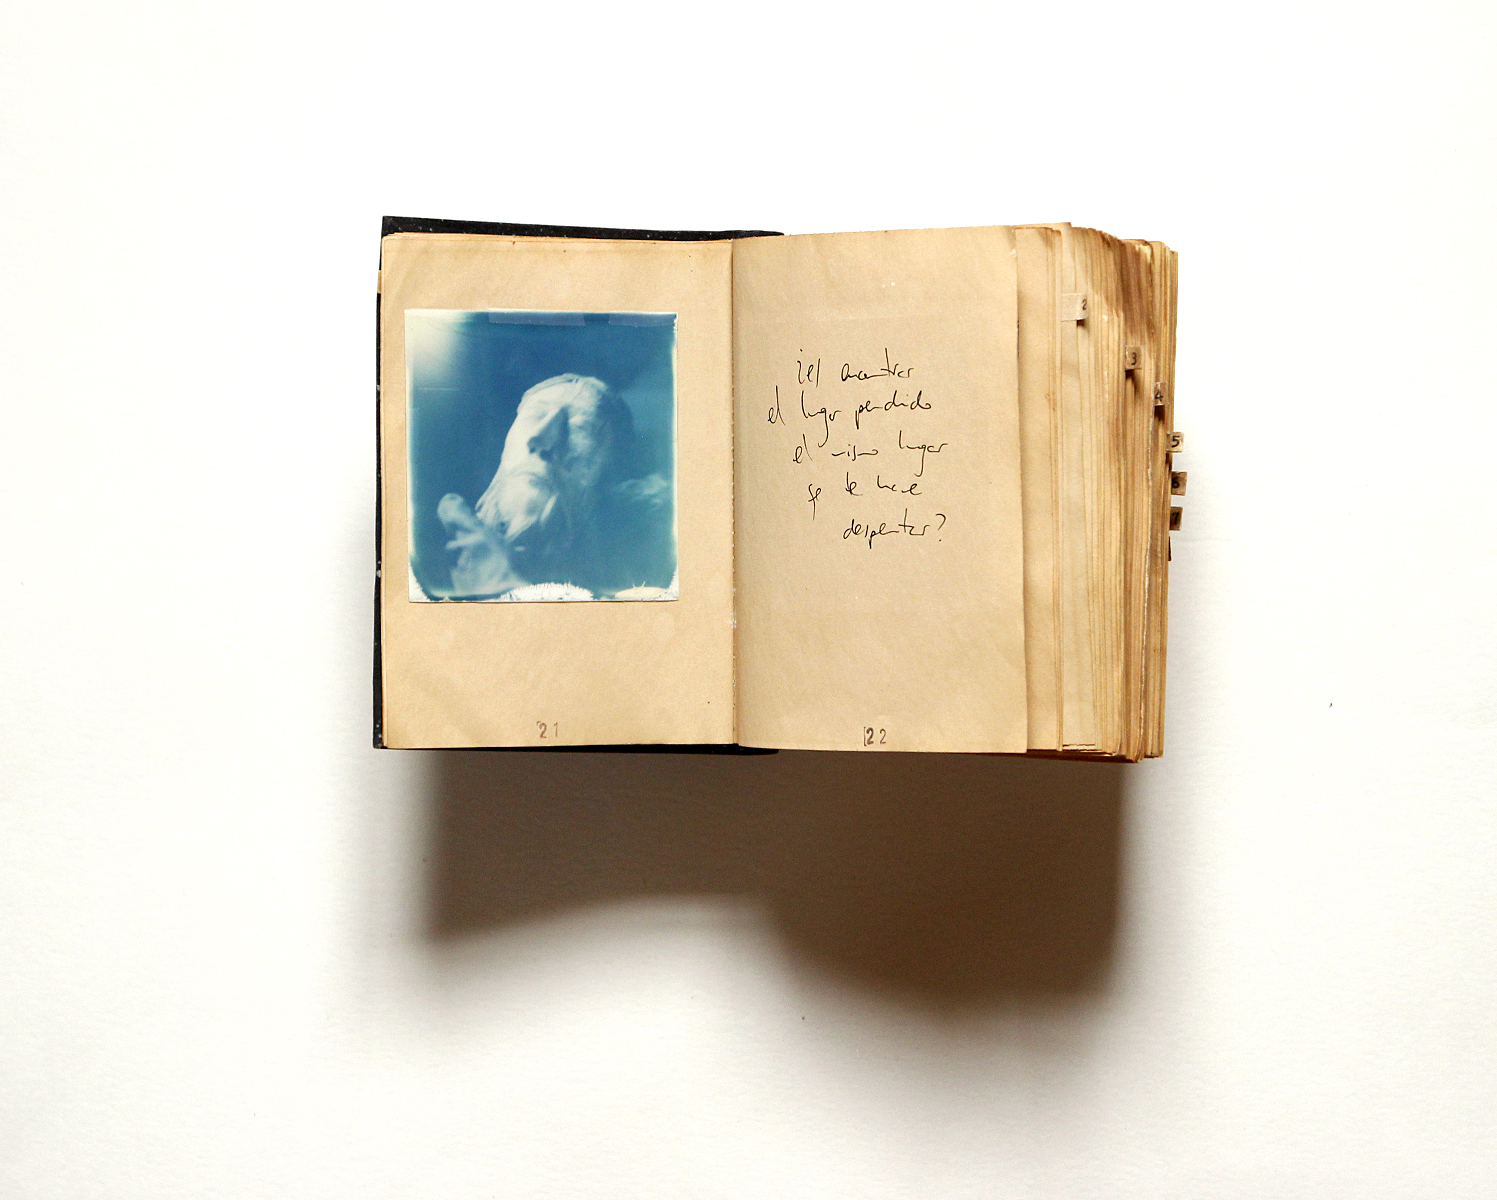 encontrar
el lugar perdido
el mismo lugar
te hace
despertar?
21
22
2
3
4
5
6
7